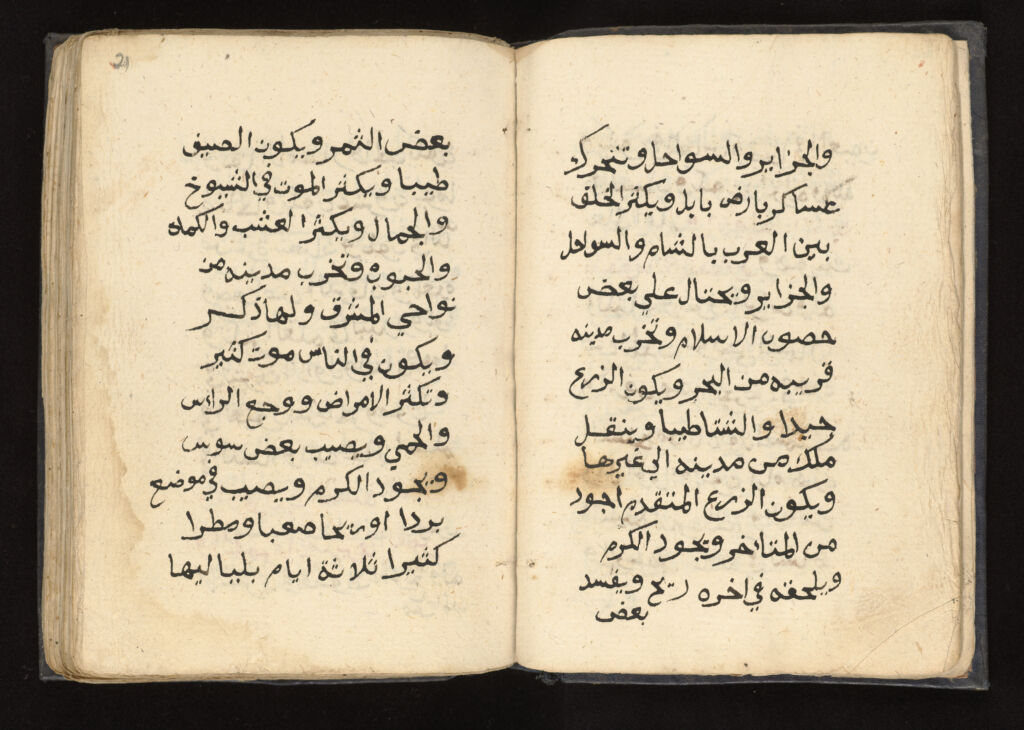 والجزاير والسواحل وتتحرك
عساكر بارض بابل ويكثر الخلف
بين العرب بالشام والسواحل
والجزاير ويحتال علي بعض
حصون الاسلام وتخرب مدينه
قريبه من البحر ويكون الزرع
جيدا والشتا طيبا وينقل
ملك من مدينه الي غيرها
ويكون الزرع المتقدم اجود
من المتاخر ويجود الكرم
ويلحقه في اخره ريح ويفسد
بعض
21
بعض الثمر ويكون الصيف
طيبا ويكثر الموت في الشيوخ
والجمال ويكثر العشب والكماه
والحبوب وتخرب مدينه من
نواحي المشرق ولها ذكر
ويكون في الناس موت كثير
وتكثر الامراض ووجع الراس
والحمي ويصيب بعض سوس
ويجود الكرم ويصيب في موضع
بردا او ريحا صعبا ومطرا
كثيرا ثلاثة ايام بلياليها